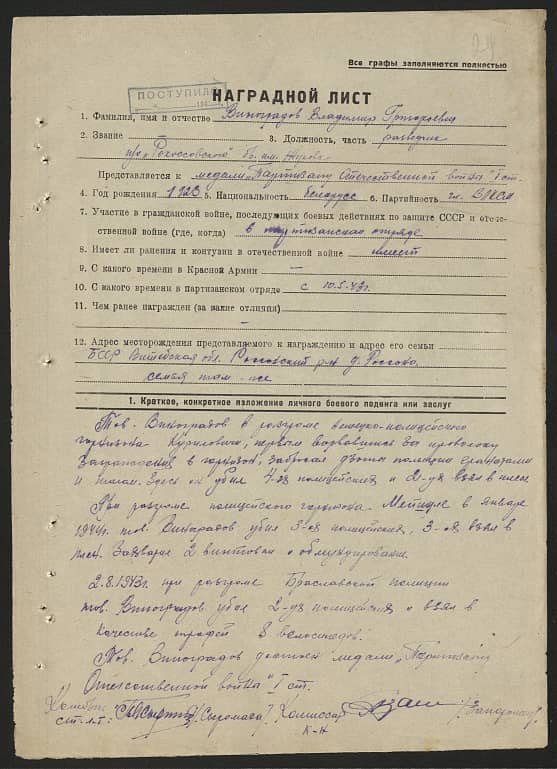 Все графы заполняются полностью
ПОСТУПИЛО
НАГРАДНОЙ ЛИСТ
1. Фамилия, имя и отчество Виноградов Владимир Григорьевич
2. Звание 3. Должность, часть разведчик
"Рокоссовского"
Представляется к медали "Партизану Отечественной войны" I ст.
4. Год рождения 1923 5. Национальность беларусс 6. Партийность чл. ВЛКСМ
7. Участие в гражданской войне, последующих боевых действиях по защите СССР и отече-
ственной войне (где, когда) в партизанском отряде
8. Имеет ли ранения и контузии в отечественной войне имеет
9. С какого времени в Красной Армии —
10. С какого времени в партизанском отряде с 10.5.43г.
11. Чем ранее награжден (за какие отличия)
—
12. Адрес месторождения представляемого к награждению и адрес его семьи
БССР Витебская обл. Россонский р-н д. Россоны
семья там-же
1. Краткое, конкретное изложение личного боевого подвига или заслуг
Тов. Виноградов в разгроме немецко-полицейского
гарнизона первым ворвавшись за проволоку
заграждения в гарнизон, забросал дзоты полиции гранатами
Здесь он убил 4-ех полицейских и 2-ух взял в плен
При разгроме полицейского гарнизона в январе
1944г. тов. Виноградов убил 3-ех полицейских, 3-ех взял в
плен. 2 винтовки и обмундирование.
2.8.1943г. при разгроме Браславской полиции
тов. Виноградов убил 2-ух полицейских и взял в
качестве трофей 8 велосипедов.
Тов. Виноградов достоин медали "Партизану
Отечественной войны" I ст.
ст. л-т: Комиссар
к-н